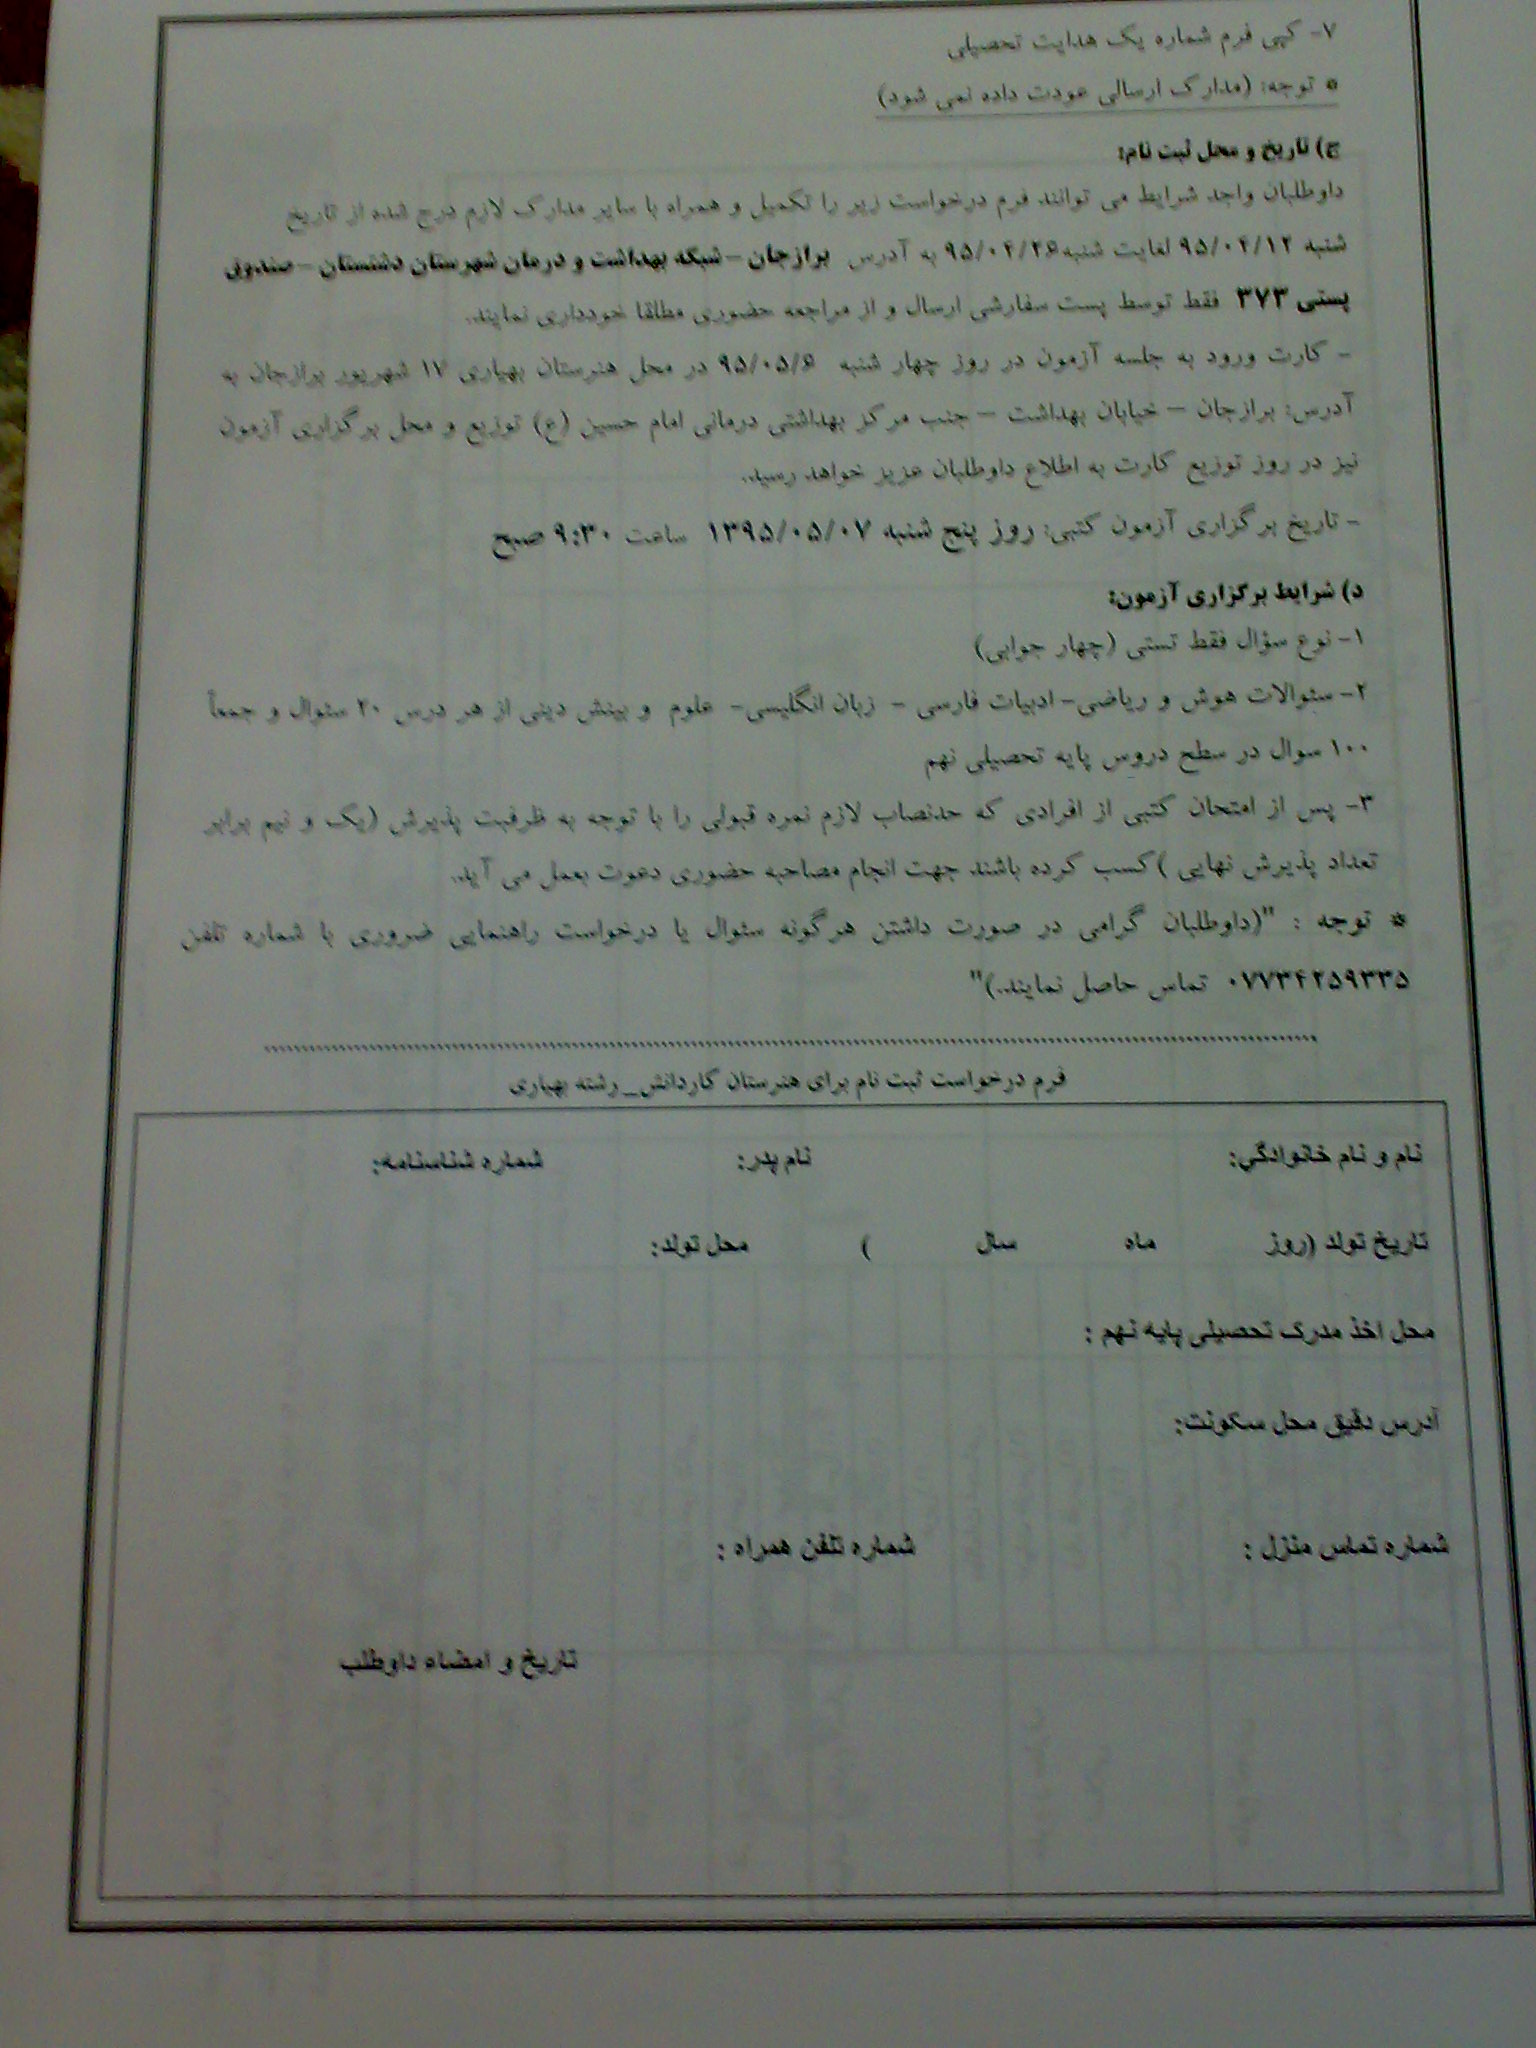 ۷- کپی فرم شماره یک هدایت تحصیلی
* توجه: (مدارک ارسالی عودت داده نمی شود)
ج) تاریخ و محل ثبت نام:
داوطلبان واجد شرایط می توانند فرم درخواست زیر را تکمیل و همراه با سایر مدارک لازم درج شده از تاریخ
شنبه ۹۵/۰۴/۱۲ لغایت شنبه ۹۵/۰۴/۲۶ به آدرس برازجان – شبکه بهداشت و درمان شهرستان دشتستان – صندوق
پستی ۳۷۳ فقط توسط پست سفارشی ارسال و از مراجعه حضوری مطلقا خودداری نمایند.
- کارت ورود به جلسه آزمون در روز چهار شنبه ۹۵/۰۵/۶ در محل هنرستان بهیاری ۱۷ شهریور برازجان به
آدرس: برازجان – خیابان بهداشت – جنب مرکز بهداشتی درمانی امام حسین (ع) توزیع و محل برگزاری آزمون
نیز در روز توزیع کارت به اطلاع داوطلبان عزیز خواهد رسید.
- تاریخ برگزاری آزمون کتبی: روز پنج شنبه ۱۳۹۵/۰۵/۰۷ ساعت ۹:۳۰ صبح
د) شرایط برگزاری آزمون:
۱- نوع سؤال فقط تستی (چهار جوابی)
۲- سئوالات هوش و ریاضی- ادبیات فارسی - زبان انگلیسی- علوم و بینش دینی از هر درس ۲۰ سئوال و جمعاً
۱۰۰ سوال در سطح دروس پایه تحصیلی نهم
۳- پس از امتحان کتبی از افرادی که حدنصاب لازم نمره قبولی را با توجه به ظرفیت پذیرش (یک و نیم برابر
تعداد پذیرش نهایی )کسب کرده باشند جهت انجام مصاحبه حضوری دعوت بعمل می آید.
* توجه : "(داوطلبان گرامی در صورت داشتن هرگونه سئوال یا درخواست راهنمایی ضروری با شماره تلفن
۰۷۷۳۴۲۵۹۳۳۵ تماس حاصل نمایند.)"
فرم درخواست ثبت نام برای هنرستان کاردانش_رشته بهیاری
نام و نام خانوادگی: نام پدر: شماره شناسنامه:
تاریخ تولد (روز ماه سال ) محل تولد:
محل اخذ مدرک تحصیلی پایه نهم :
آدرس دقیق محل سکونت:
شماره تماس منزل : شماره تلفن همراه :
تاریخ و امضاء داوطلب